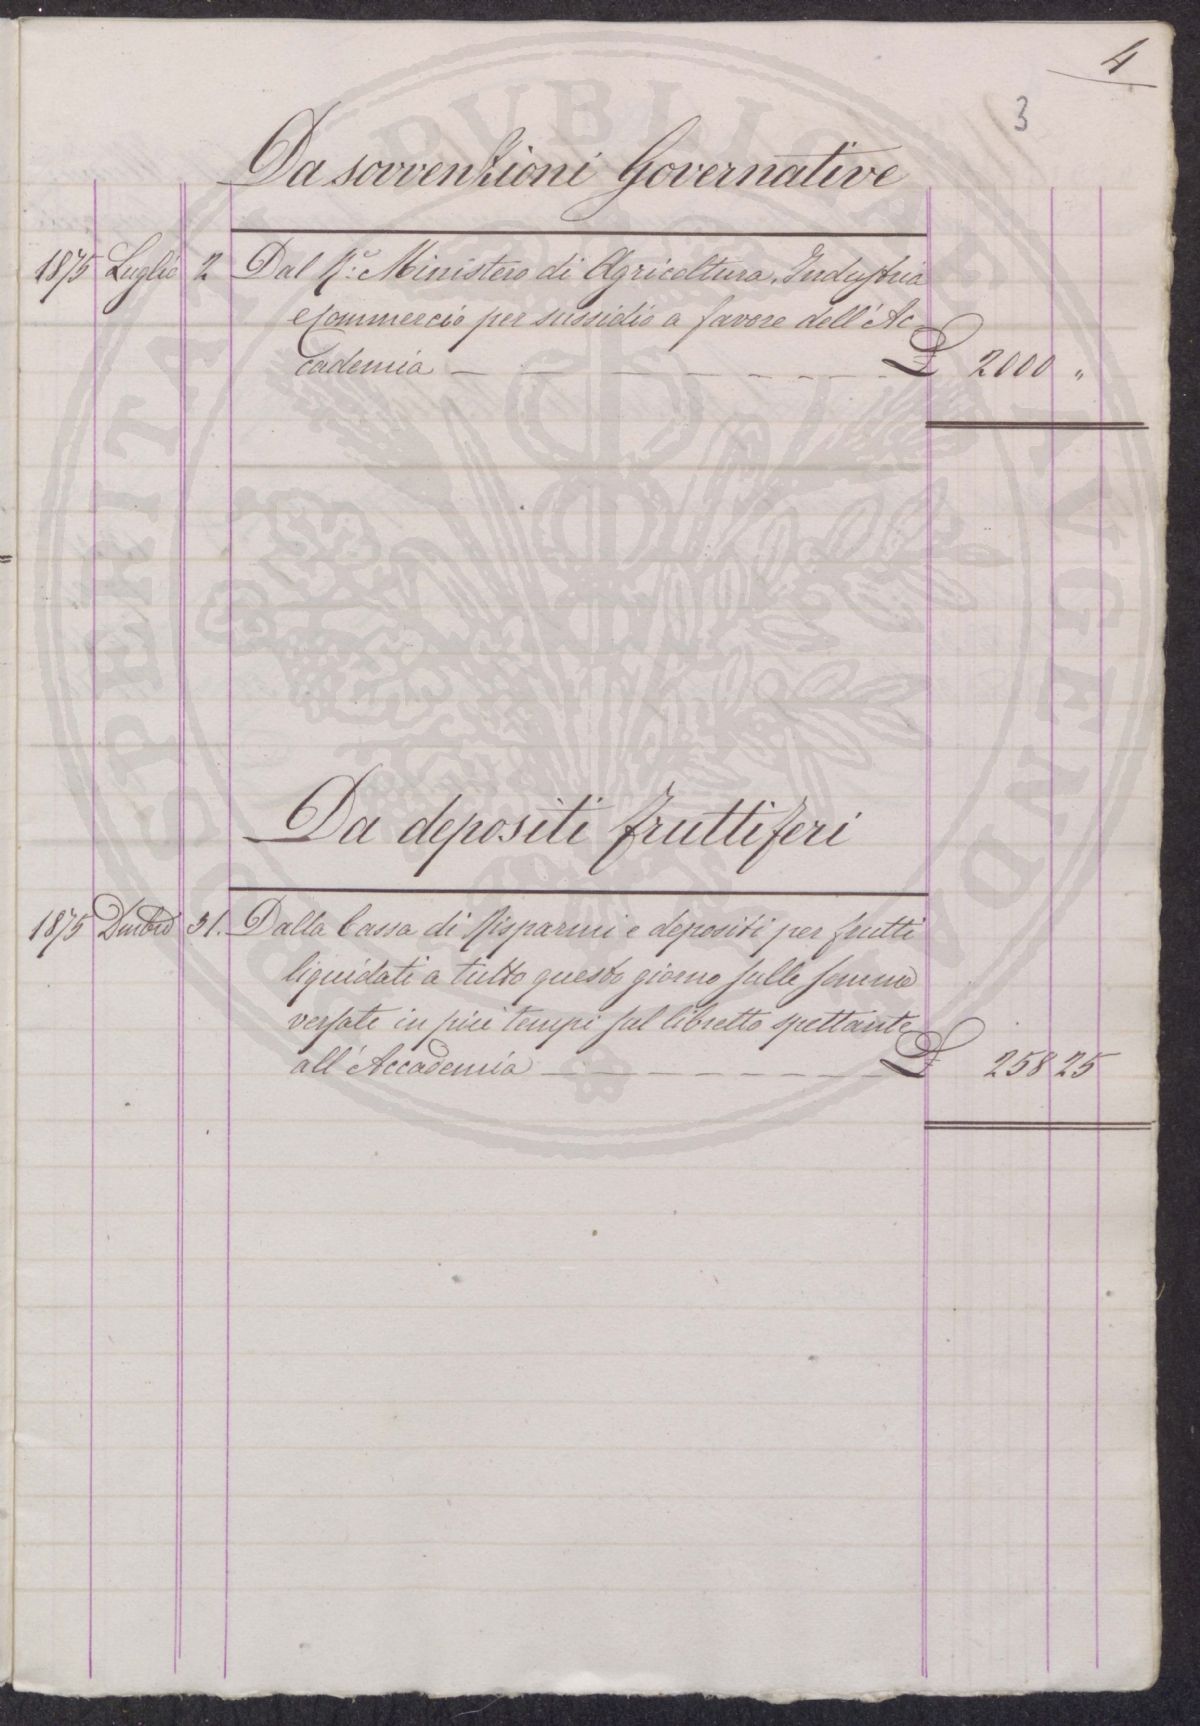 4
3
Da sovvenzioni Governative
1875 Luglio 2 Dal R.º Ministero di Agricoltura, Industria
e Commercio per sussidio a favore dell'Ac
cademia — — — — — — — £ 2000 "
Da depositi fruttiferi
1875 31. Dalla Cassa di Risparmi e depositi per frutti
liquidati a tutto questo giorno sulle somme
versate in più tempi sul libretto spettante
all'Accademia — — — — — — — £ 258 25
PROSPERITATI PUBLICAE AUGENDAE